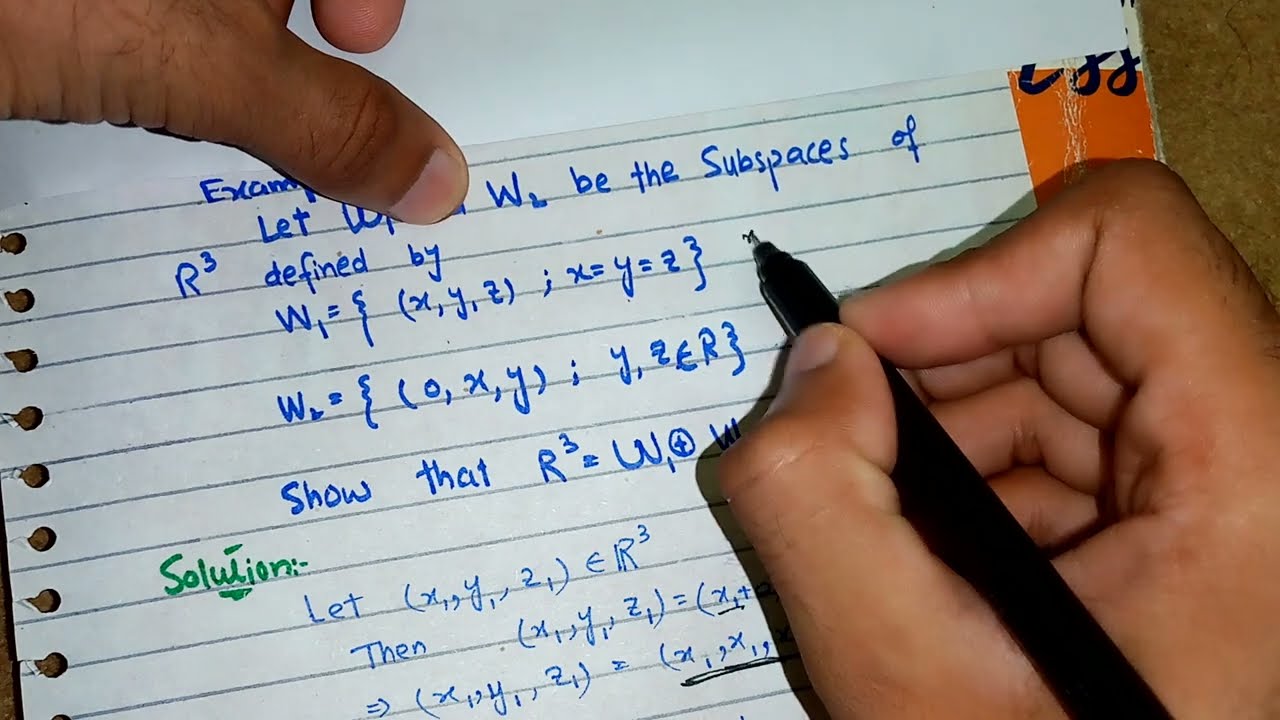 Let W₂ be the Subspaces of
R³ defined by
W₁ = { (x, y, z) ; x = y = z }
W₂ = { (0, x, y) ; y, z ∈ R }
Show that R³ = W₁ ⊕
Solution:-
Let (x₁, y₁, z₁) ∈ R³
Then (x₁, y₁, z₁) = (x₁ +
⇒ (x₁, y₁, z₁) = (x₁, x₁,